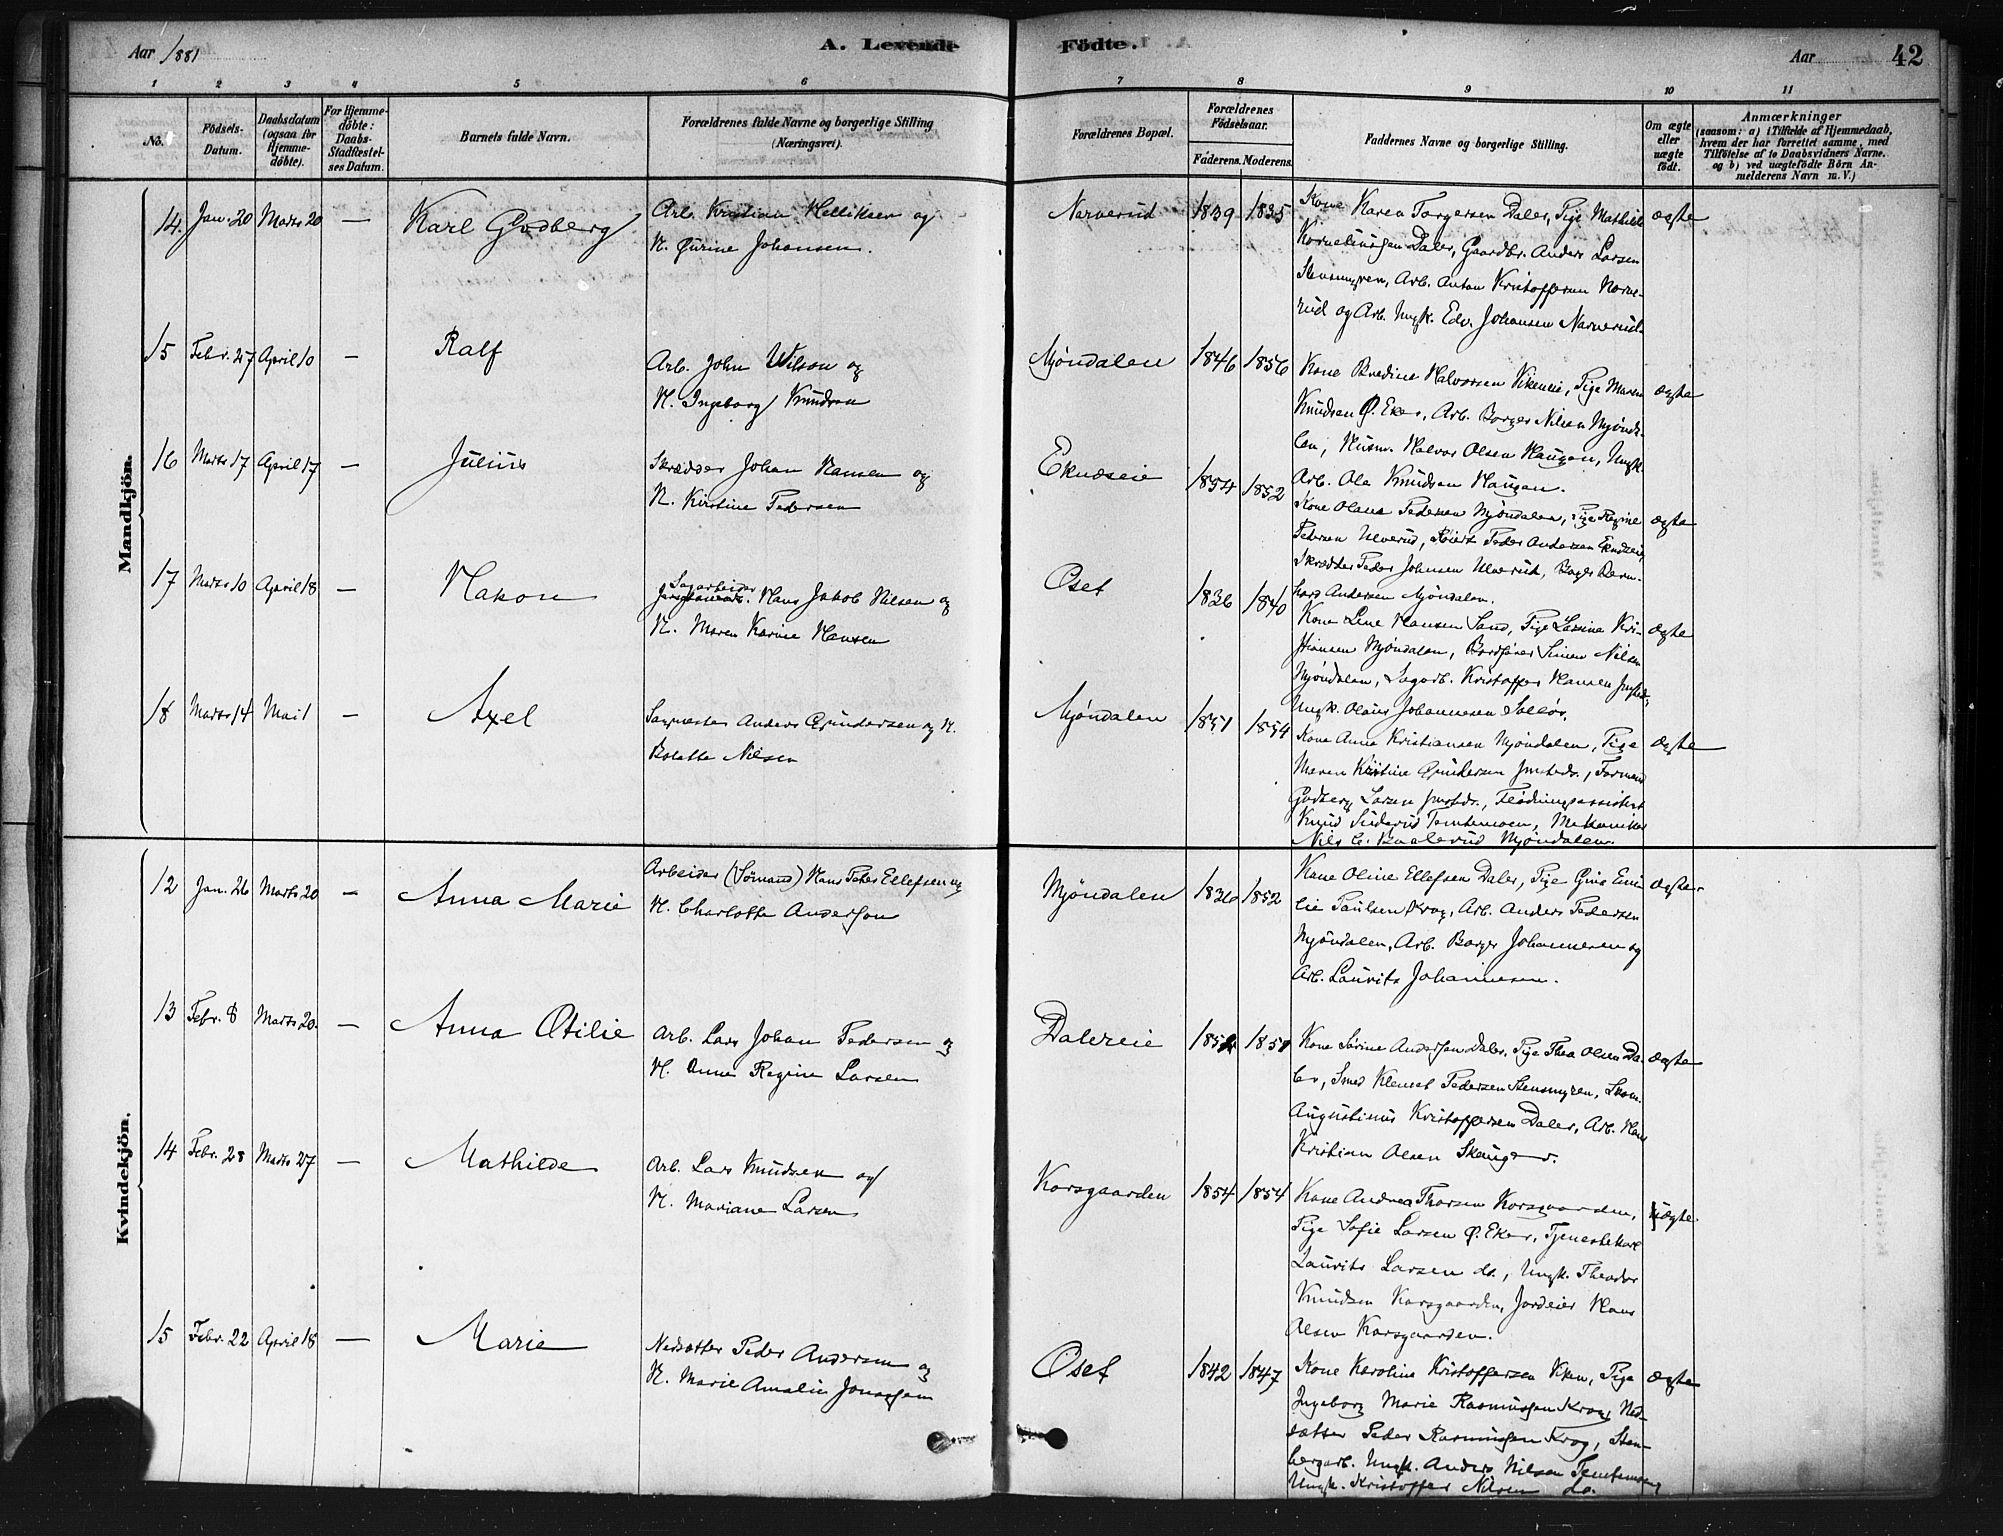 Aar 1881
A. Levende
Födte.
Aar
42
1 2 3 4 5 6 7 8 9 10 11
No.
Födsels-
Datum.
Daabsdatum
(ogsaa for
Hjemme-
döbte).
For Hjemme-
döbte:
Daabs-
Stadfæstel-
ses Datum.
Barnets fulde Navn.
Forældrenes fulde Navne og borgerlige Stilling
(Næringsvei).
Forældrenes Bopæl.
Forældrenes
Födselsaar.
Faderens. Moderens.
Faddernes Navne og borgerlige Stilling.
Om ægte
eller
uægte
födt.
Anmærkninger
(saasom: a) i Tilfælde af Hjemmedaab,
hvem der har forrettet samme, med
Tilföielse af to Daabsvidners Navne.
og b) ved uægtefödte Börn An-
melderens Navn m. V.)
Mandkjön.
14. Jan. 20 Marts 20 — Karl Godberg
Arb. Kristian Helliksen og
H. Gurine Johansen.
Narverud 1839 1835
Kone Karen Torgersen Daler, Pige Mathilde
Korneliussen Daler, Gaardbr. Anders Larsen
Stensmyren, Arb. Anton Kristoffersen Narve-
rud og Arb. Ungk. Edv. Johansen Narverud.
ægte
15 Febr. 27 April 10 — Ralf
Arb. John Wilson og
H. Ingeborg Knudsen
Mjøndalen 1846 1856
Kone Bredine Halvorsen Vikeneie, Pige Maren
Knudsen Ø. Eker, Arb. Borger Nilsen Mjønda-
len, Husm. Halvor Olsen Haugen, Ungk.
Arb. Ole Knudsen Haugen.
ægte
16 Marts 17 April 17 — Julius
Skrædder Johan Hansen og
H. Kirstine Pedersen
Eknæseie 1854 1852
Kone Olava Pedersen Mjøndalen, Pige Regine
Pedersen Ulverud, Peder Andersen Eknæseie,
Skrædder Peder Johnsen Ulverud, Bager Bern-
hard Andersen Mjøndalen.
ægte
17 Marts 10 April 18 — Hakon
Sagarbeider Hans Jakob Nilsen og
H. Maren Karine Hansen
Oset 1836 1840
Kone Line Hansen Sand, Pige Lavina Kri-
stiansen Mjøndalen, Bordfører Simen Nilsen
Mjøndalen, Sagarb. Kristoffer Hansen
Ungk. Olaus Johannesen Solløs.
ægte
18 Marts 14 Mai 1 — Axel
Sagmester Anders Gundersen og H.
Bolette Nilsen
Mjøndalen 1851 1854
Kone Anna Kristiansen Mjøndalen, Pige
Maren Kristine Gundersen Formand
Godberg Larsen Flødningsassistent
Knud Suderud Temtemoen, Mekaniker
Nils C. Baalerud Mjøndalen.
ægte
Kvindekjön.
12 Jan. 26 Marts 20 — Anna Marie
Arbeider (Sømand) Hans Peter Ellefsen og
H. Charlotte Andersson
Mjøndalen 1836 1852
Kone Oline Ellefsen Daler, Pige Gina Emi-
lie Paulsen Krog, Arb. Anders Pedersen
Mjøndalen, Arb. Borger Johannesen og
Arb. Laurits Johannesen.
ægte
13 Febr. 8 Marts 20. — Anna Otilie
Arb. Lars Johan Pedersen og
H. Anne Regine Larsen
Dalereie 1852 1851
Kone Sørine Andersson Daler, Pige Thea Olsen Da-
ler, Smed Klemet Pedersen Stensmyren, Skom.
Augustinus Kristoffersen Daler, Arb. Hans
Kristian Olsen Skanger.
ægte
14 Febr. 28 Marts 27 — Mathilde
Arb. Lars Knudsen og
H. Mariane Larsen
Korsgaarden 1854 1854
Kone Andrea Thorsen Korsgaarden,
Pige Sofie Larsen Ø. Eker, Tjenestekarl
Laurits Larsen do., Ungk. Theodor
Knudsen Korsgaarden, Jordeier Hans
Olsen Korsgaarden.
ægte
15 Febr. 22 April 18 — Marie
Nedsætter Peder Andersen og
H. Marie Amalie Jonassen
Oset 1842 1847
Kone Karoline Kristoffersen Viken, Pige
Ingeborg Marie Rasmussen Krog, Ned-
sætter Peder Rasmussen Krog, Sten-
bergarb. Ungk. Anders Nilsen Temtemoen,
Ungk. Kristoffer Nilsen do.
ægte